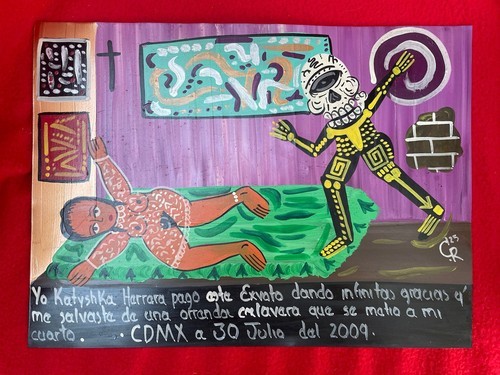 C 23
R
Yo Katyshka Herrara pago este Exvoto dando infinitas gracias q'
me salvaste de una orrandoa calavera que se matio a mi
cuarto. . CDMX a 30 Julio del 2009.